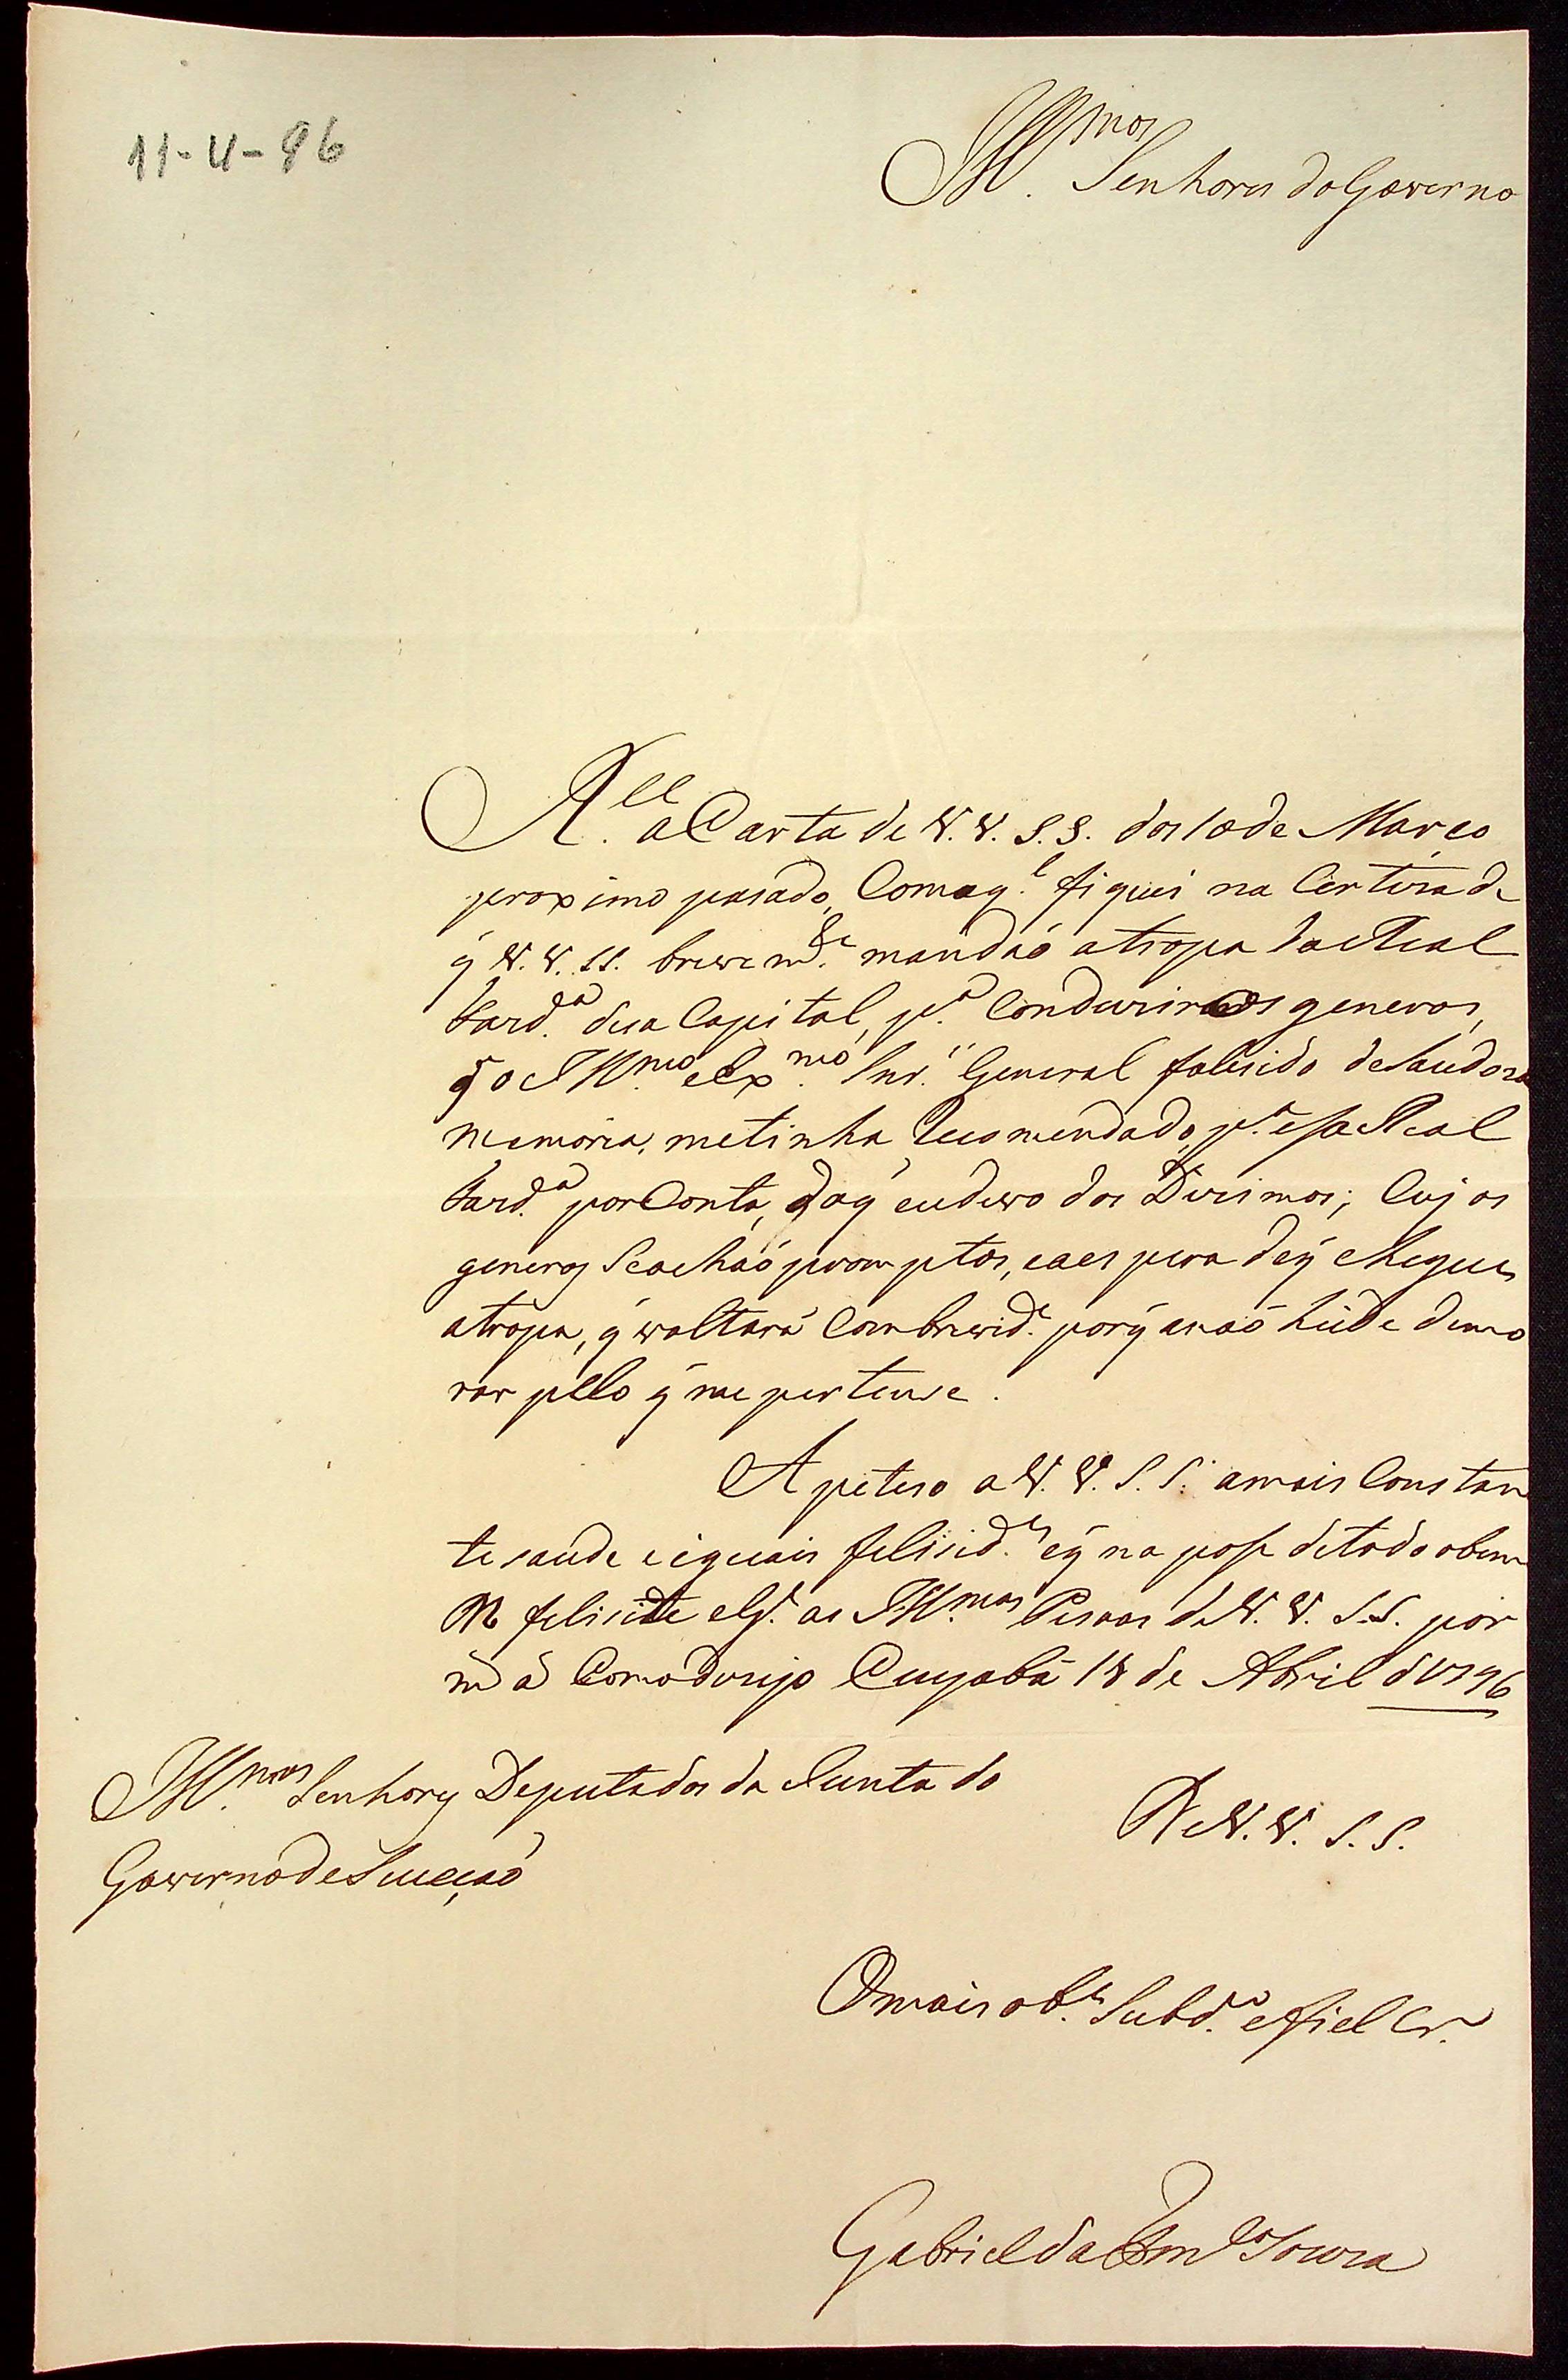 11-4-96
Ill.mos Senhores do Governo
R.ce a Carta de V. V. S. S. dos 10 de Março
proximo pasado, Com a q.l fiquei na Certeza de
q̃ V. V. S.S. brevem.te mandaõ a tropa da Real
Fazd.a desa Capital, p.a Conduzir os generos,
q̃ o Ill.mo e Ex.mo Snr.' General falecido de Saudoza
memoria, me tinha Recomendado, p.a esa Real
Fazd.a por Conta, do q̃ eu devo dos Dizimos; Cujos
generos Se achaõ promptos, e a espera de q̃ chegue
a tropa, q̃ voltará Com brevid.e porq̃ a naõ hei de demo
rar pello q̃ me pertense.
Apeteso a V. V. S. S. a mais Constan
te saude e iguais felisid.es e q̃ na pose de todo o bem
N felicite e Gd.e as Ill.mas Pesoas de V. V. S. S. por
m.s a.s Como dezejo Cuyabá 18 de Abril d 1796
Ill.mos Senhores Deputados da Junta do
Governo de Sucçaõ
De V. V. S. S.
O mais ob.e Subd.o e fiel Cr.
Gabriel da Fon.ca Souza